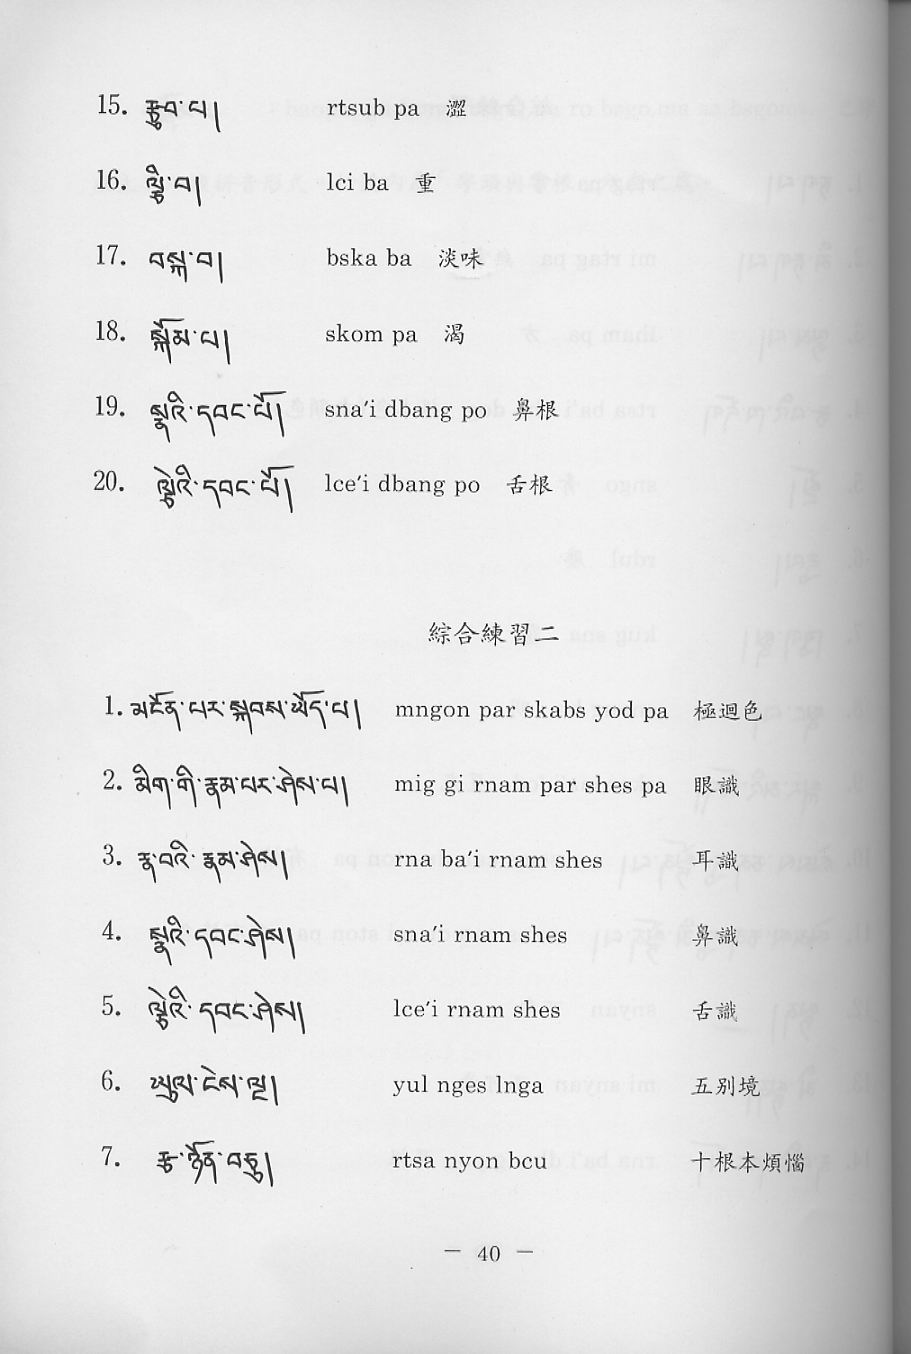 15. རྩུབ་པ། rtsub pa 澀
16. ལྕི་བ། lci ba 重
17. བསྐ་བ། bska ba 淡味
18. སྐོམ་པ། skom pa 渴
19. སྣའི་དབང་པོ། sna'i dbang po 鼻根
20. ལྕེའི་དབང་པོ། lce'i dbang po 舌根
綜合練習二
1. མངོན་པར་སྐབས་ཡོད་པ། mngon par skabs yod pa 極迴色
2. མིག་གི་རྣམ་པར་ཤེས་པ། mig gi rnam par shes pa 眼識
3. རྣ་བའི་རྣམ་ཤེས། rna ba'i rnam shes 耳識
4. སྣའི་དབང་ཤེས། sna'i rnam shes 鼻識
5. ལྕེའི་དབང་ཤེས། lce'i rnam shes 舌識
6. ཡུལ་ངེས་ལྔ། yul nges lnga 五別境
7. རྩ་ཉོན་བཅུ། rtsa nyon bcu 十根本煩惱
— 40 —